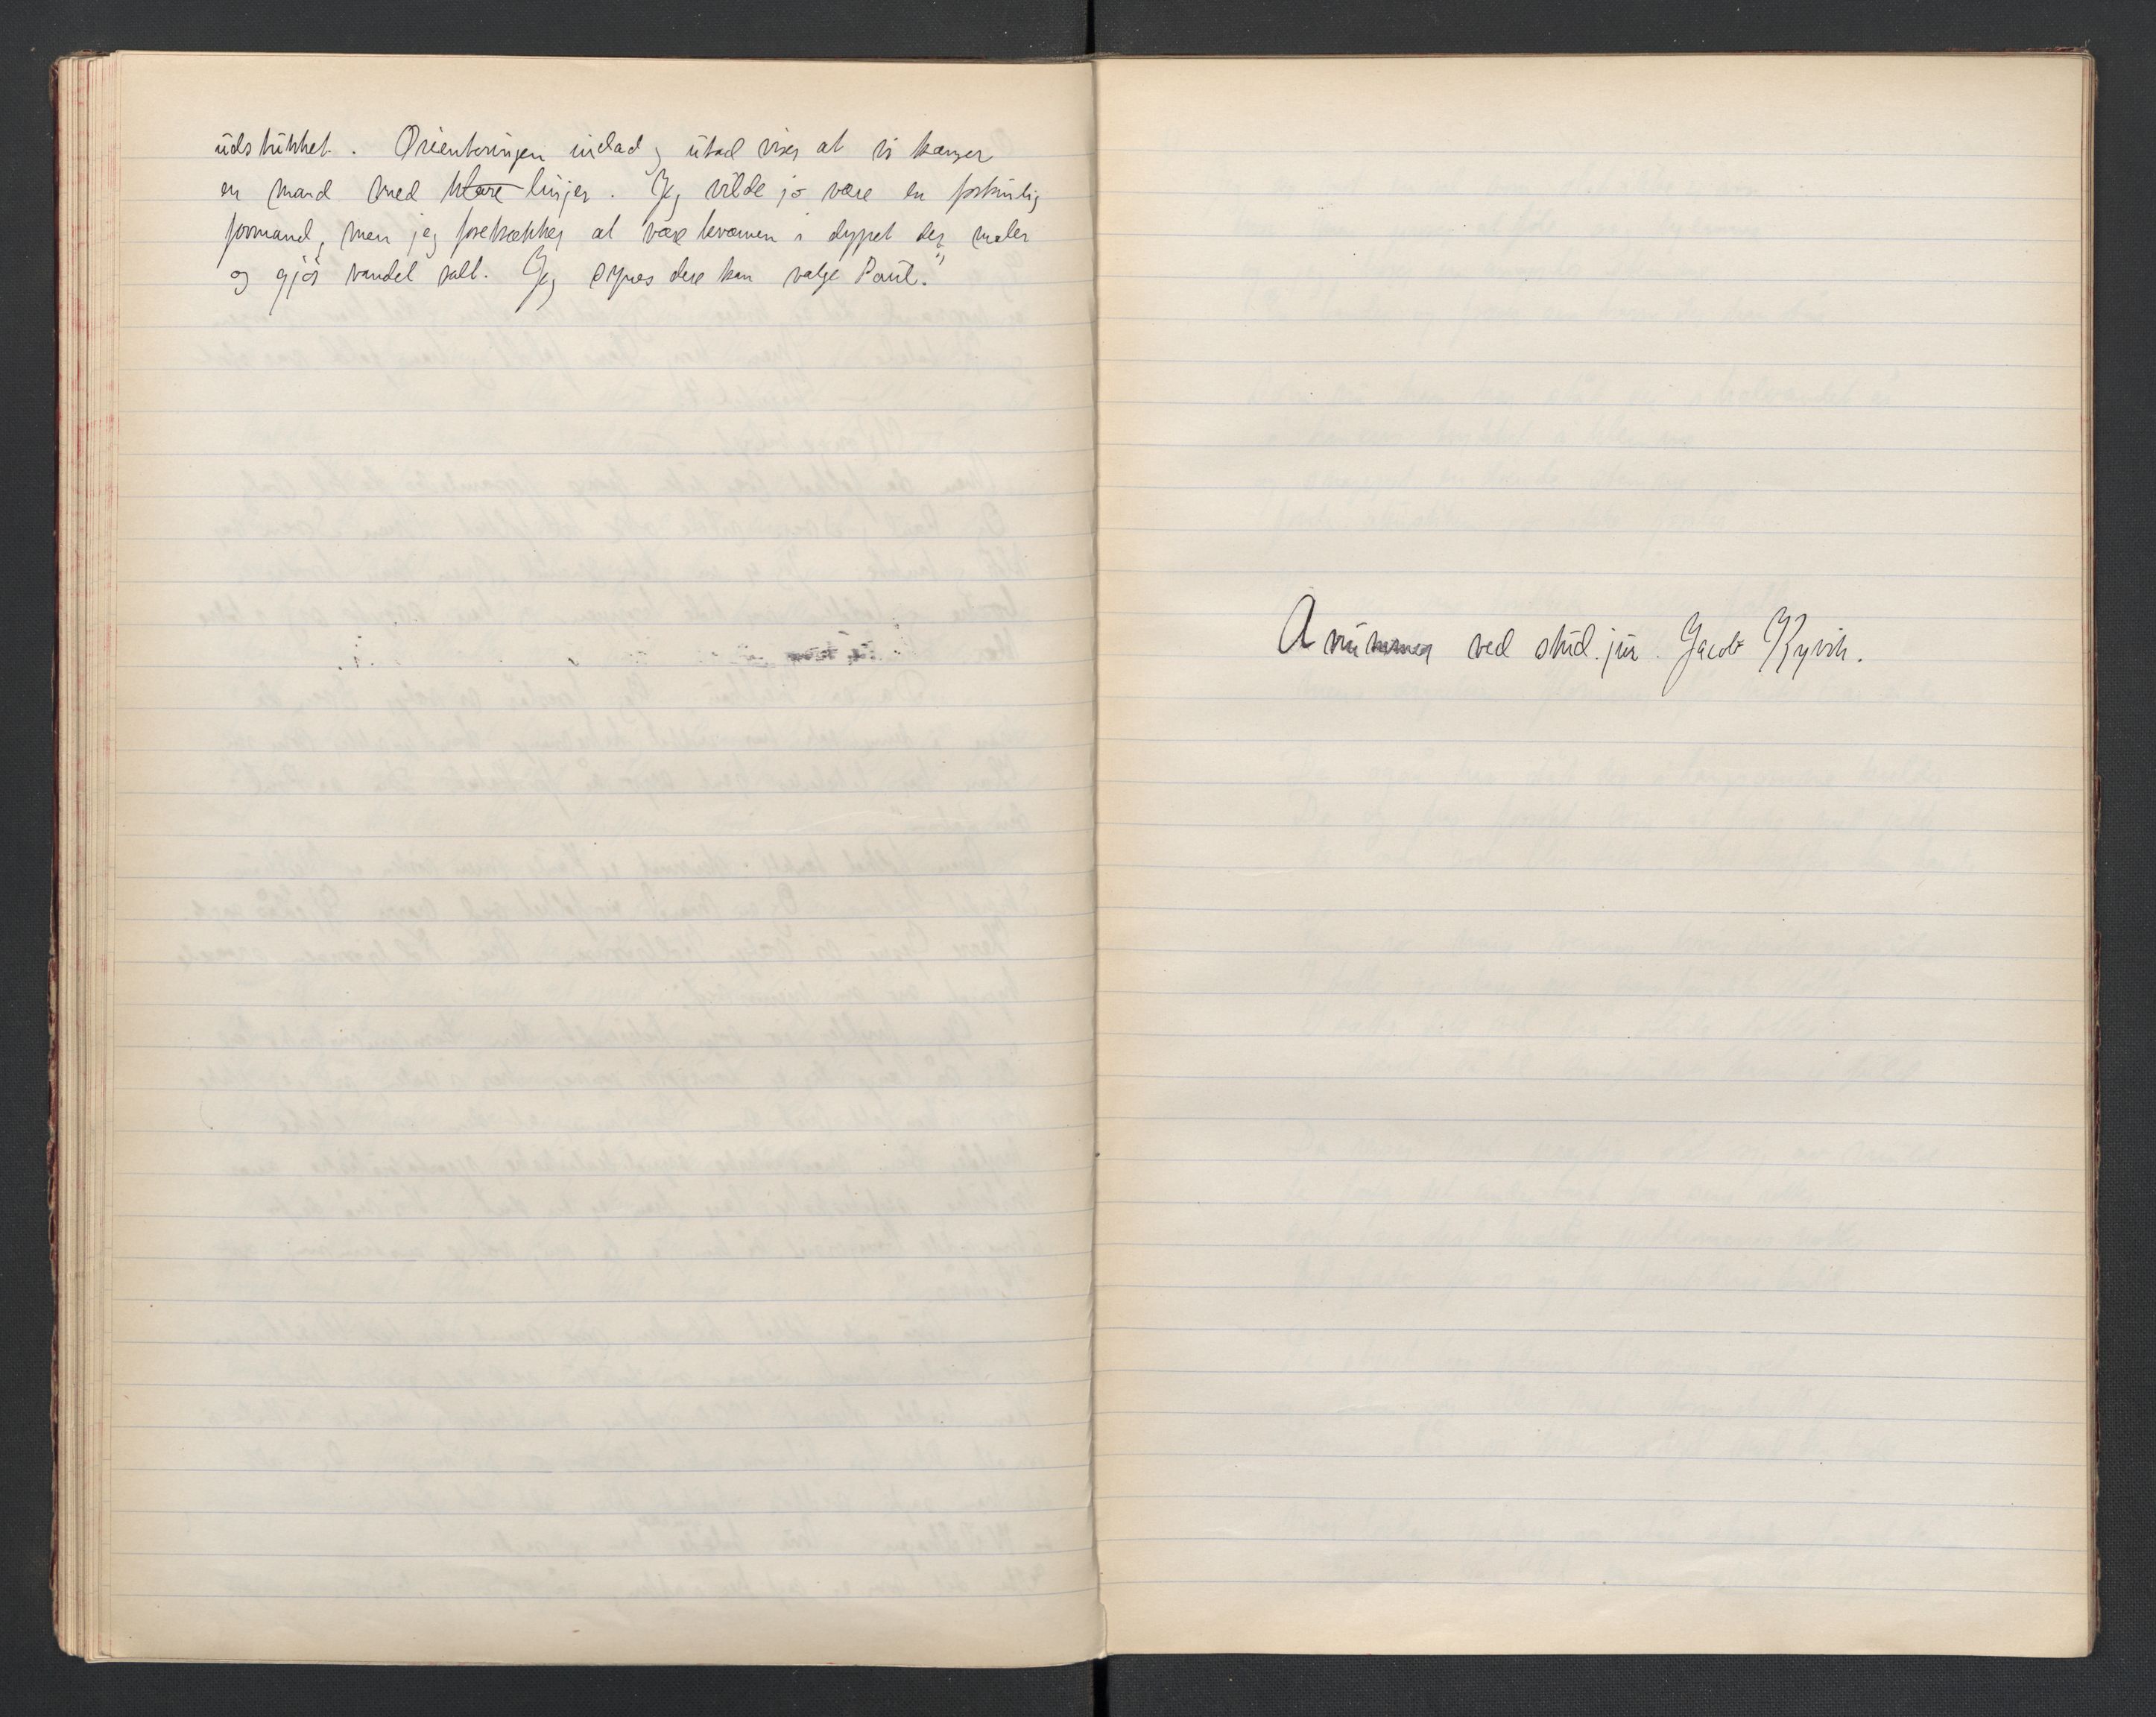 udstukket. Orienteringen indad og utad viser at vi trænger
en mand med klare linjer. Jeg vilde jo være en
formand, men jeg foretrækker at være kvernen i dypet der maler
og gjør vandet salt. Jeg synes dere kan vælge Paul."
Avisnummer ved stud. jur. Jacob